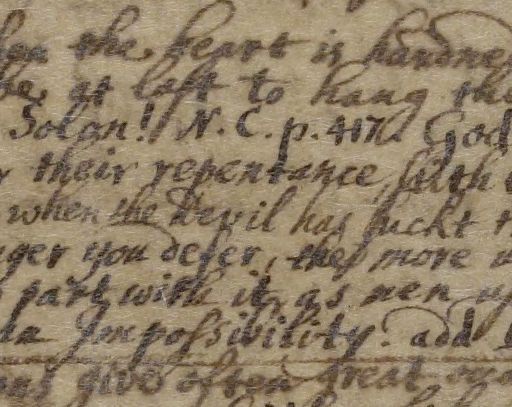 the heart is hardned
at last to hang the
Solon! N. C. p. 417. God
their repentance, saith
when the Devil has suckt
you defer, the more
part with it, as men
Impossibility. add
give often great